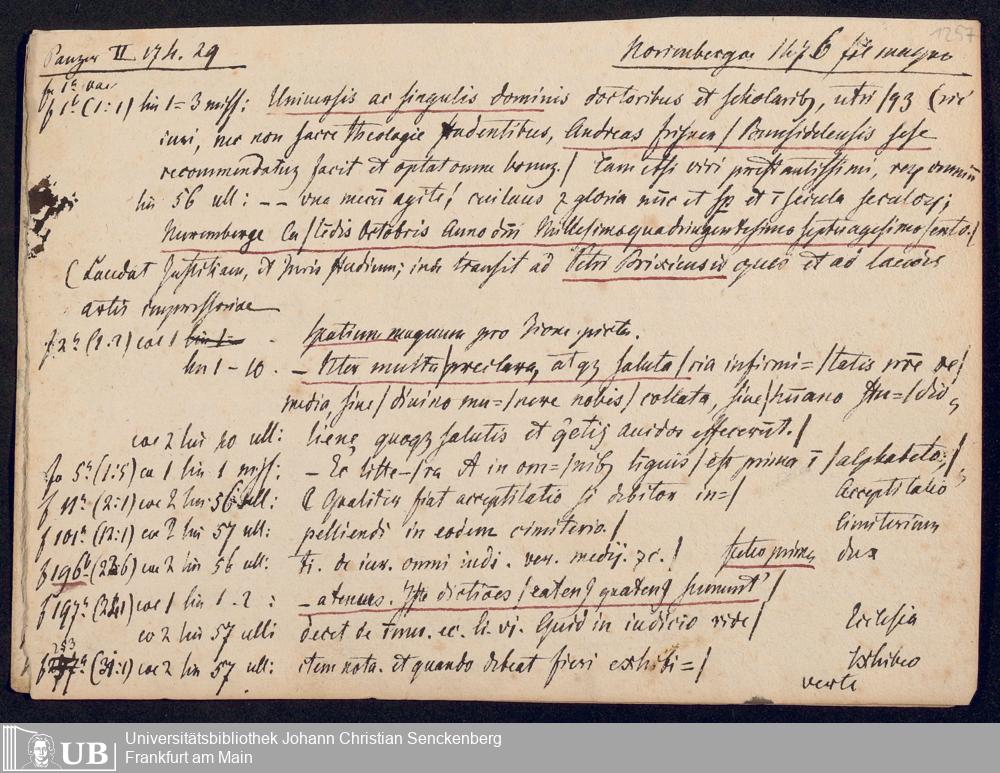 Panzer II 174. 29 Norimbergae 1476 fol magno 1257
fo 1a vac
f 1b (1:1) lin 1=3 miss: Universis ac singulis dominis doctoribus et scholaribz, utri/93 (
iuri, nec non sacre theologie studentibus, Andreas frisner / Bunsidelensis sese
recommendatuz facit et optat omne bonuz. / Tam etsi viri prestantissimi, omniu
lin 56 ult: -- vna mecu agite! cui laus z gloria nuc et sp et i secula seculor;
Nuremberge Ca/ledis Octobris Anno dni Millesimoquadringentesimo septuagesimo sexto./
( Laudat Justitiam, et Juris studium; inde transit ad Petri Brixiensis opus et ad laudes
artis impressoriae
f. 2a (1:2) coe 1 lin 1= . spatium magnum pro Icone picta.
lin 1 - 10 . - Inter multa / preclara, atqz saluta / ria infirmi= / tatis nre re /
media, sine / divino mu= / nere nobis / collata, sine / humano stu= / dio
coe 2 lin 20 ult: liene quoqz salutis et auidos effecerut. /
fo 5a (1:5) ca 1 lin 1 miss: - Ec litte- / ra A in om= / nibz liguis / est prima i / alphabeto; /
f 11a (2:1) coe 2 lin 56 ult: ( Qualiter fiat acceptilatio si debitor in= / Acceptilatio
f 101a (12:1) coe 2 lin 57 ult: pelliendi in eodem cimiterio. / Cimiterium
f 196b (22:6) coe 2 lin 56 ult: ti. de iur. omni iudi. ver. medij. zc. / sectio prima dux
f 197a (24:1) coe 1 lin 1-2 : - atenus. Iste dictioes / eaten9 quaten9 sumunt /
co 2 lin 57 ult: decet de immu. ec. li. vi. Quid in iudicio vide / Ecclesia
253
f a (31:1) coe 2 lin 57 ult: item nota. et quando debeat fieri exhibi= / Exhibeo
verte
UB Universitätsbibliothek Johann Christian Senckenberg
Frankfurt am Main